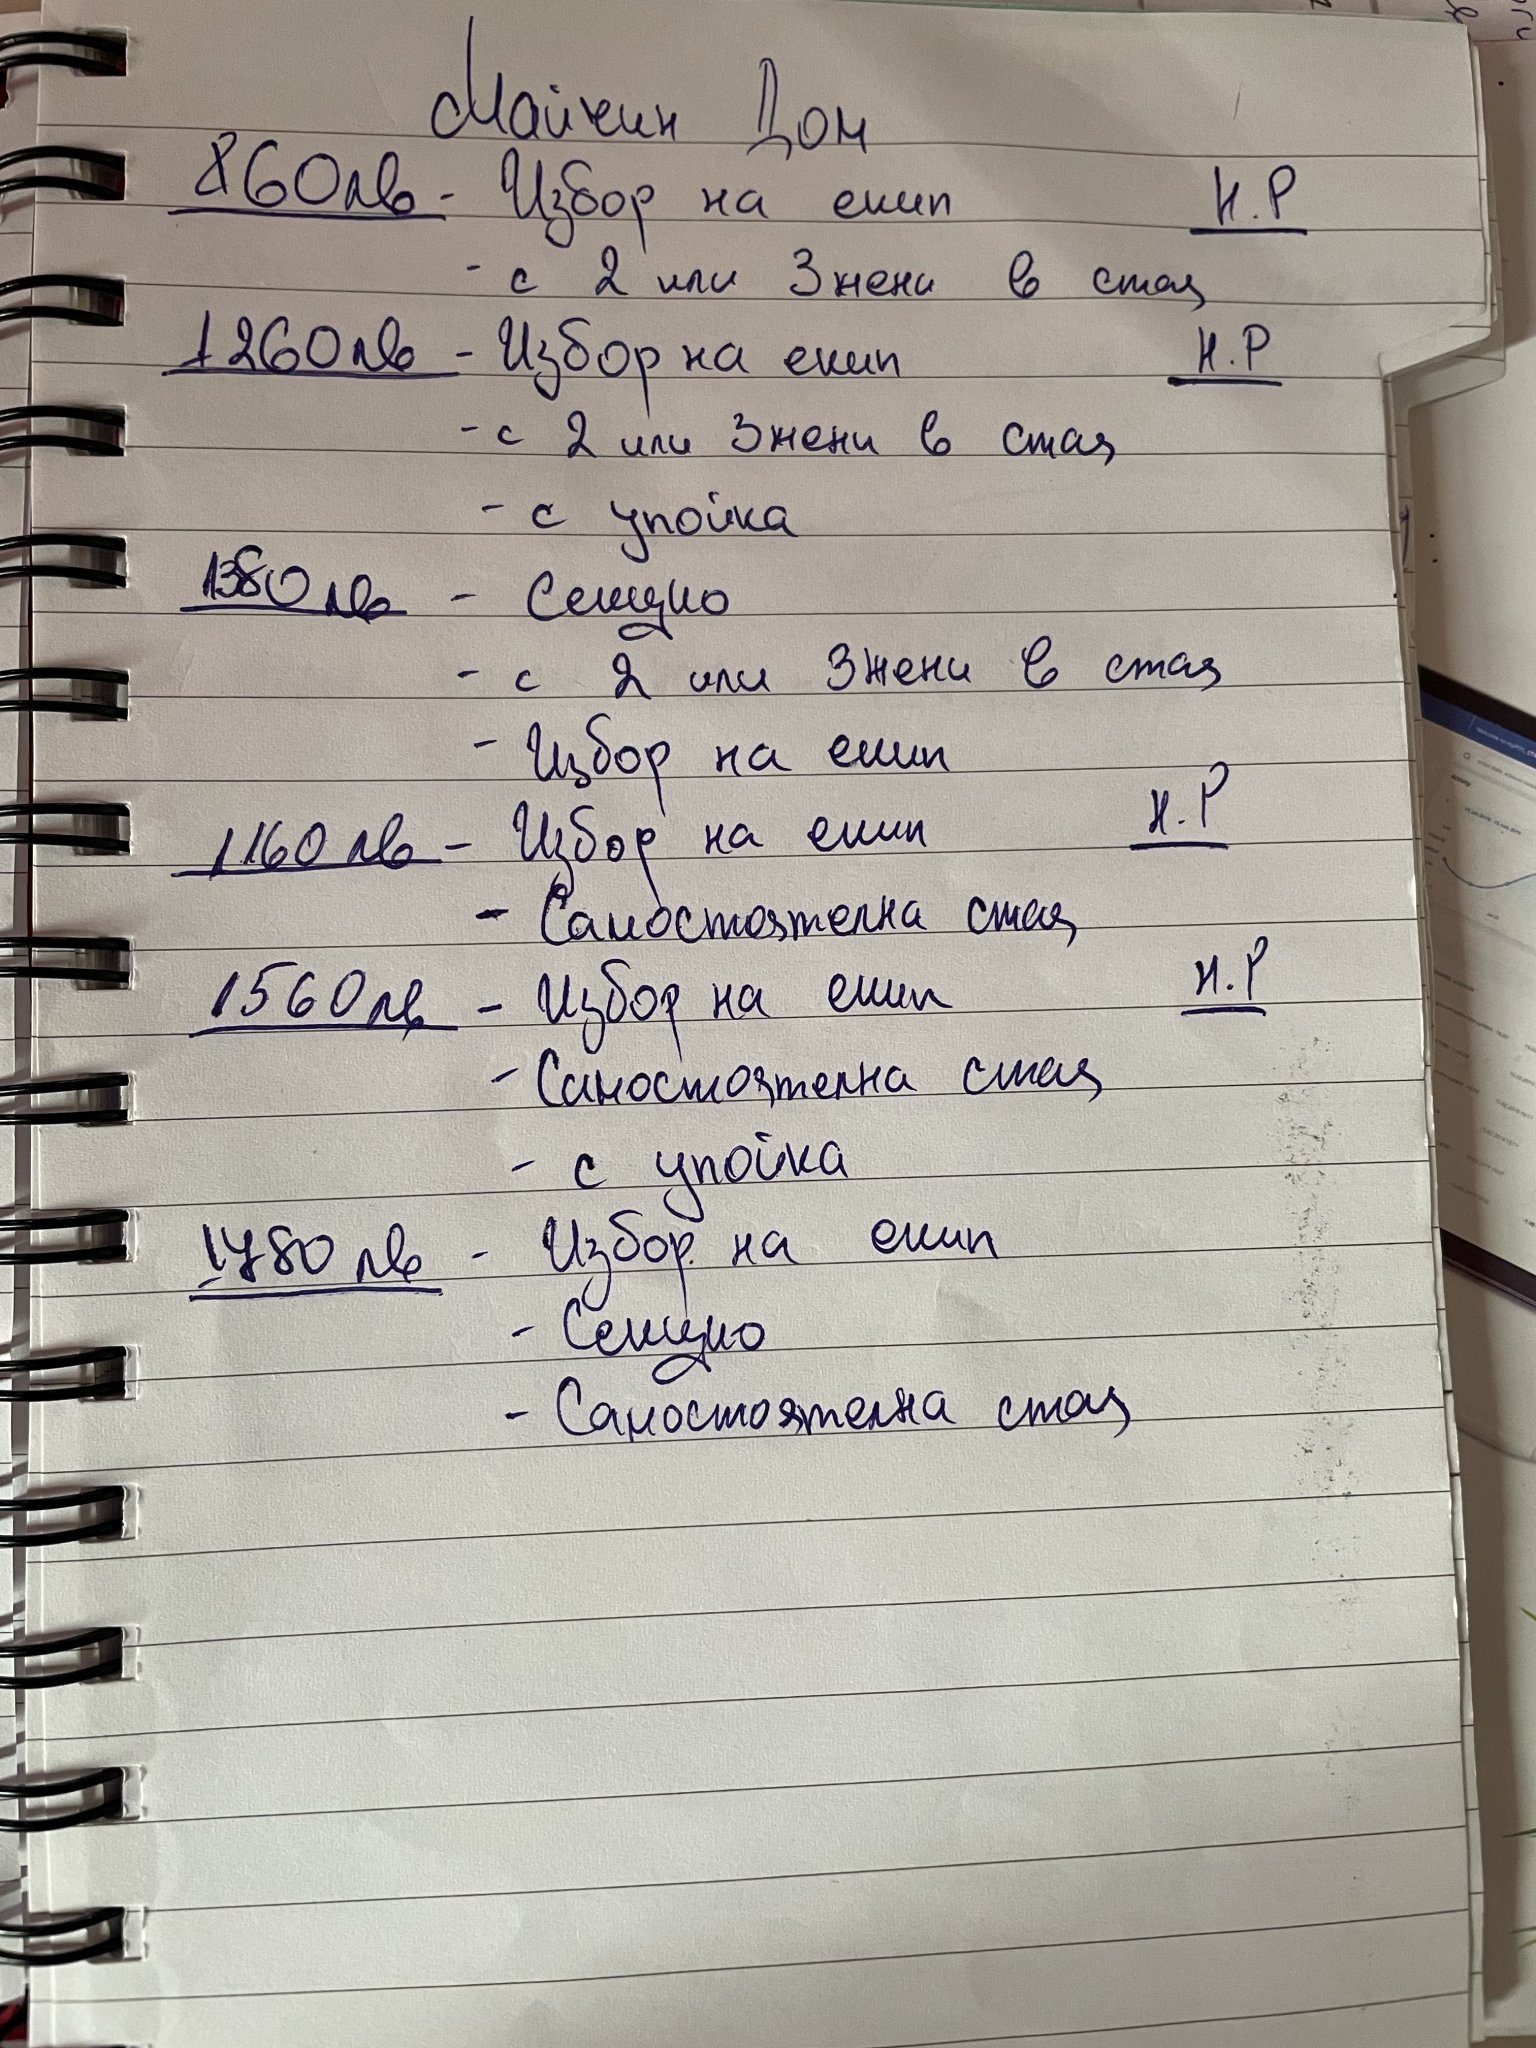 Майчин Дом
860лв - Избор на екип Н.Р
- с 2 или 3 жени в стая
1260лв - Избор на екип Н.Р
- с 2 или 3 жени в стая
- с упойка
1380лв - Секцио
- с 2 или 3 жени в стая
- Избор на екип
1160лв - Избор на екип Н.Р
- Самостоятелна стая
1560лв - Избор на екип Н.Р
- Самостоятелна стая
- с упойка
1780лв - Избор на екип
- Секцио
- Самостоятелна стая